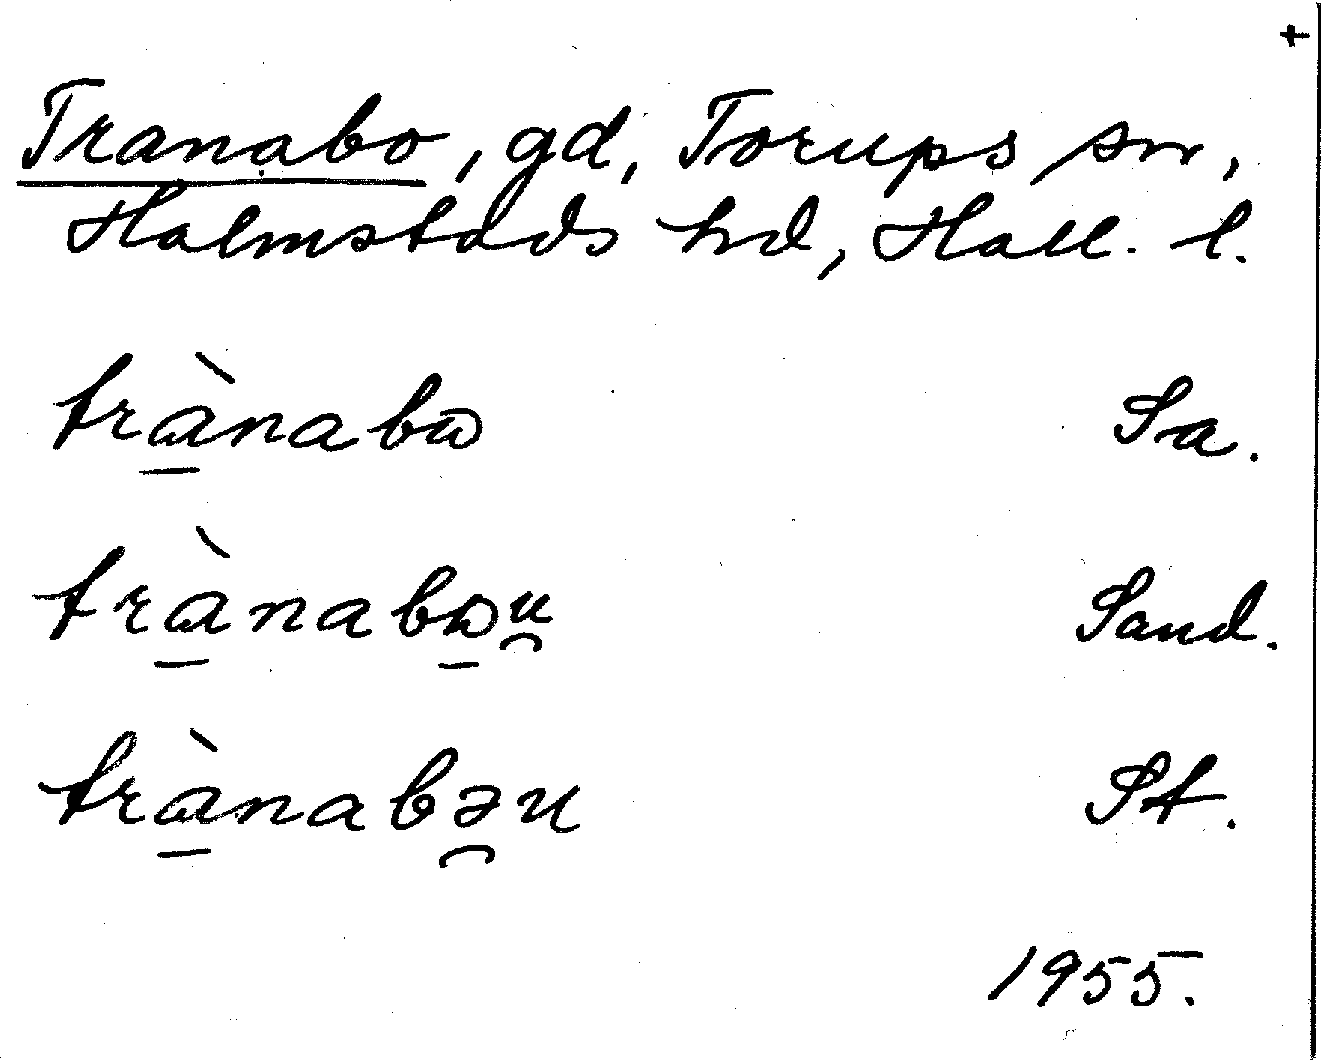 +
Tranabo, gd, Torups sn,
Halmstads hd, Hall. l.
trɑ̠̀nabɷ Sa.
trɑ̠̀nabɷ̠u̯ Sand.
trɑ̠̀nabə̯u St.
1955.